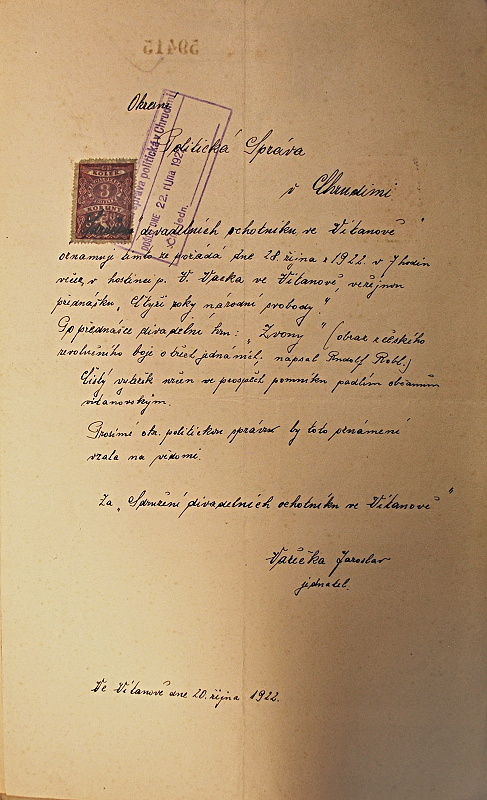 59415
Okresní
Politická Správa
v Chrudimi
správa politická v Chrudimi
DOŠLO DNE 22. října 192
KOLEK
3
KORUNY
Sdružení divadelních ochotníků ve Vítanově
oznamuje tímto že pořádá dne 28. října r 1922. v 7 hodin
večer, v hostinci p. V. Vacka ve Vítanově, veřejnou
přednášku „Čtyři roky národní svobody".
Po přednášce divadelní hru: „Zvony" (obraz z českého
revolučního boje o třech jednáních, napsal Rudolf Röbl.)
Čistý výtěžek určen ve prospěch pomníku padlým občanům
vítanovským.
Prosíme okr. politickou správu by toto oznámení
vzala na vědomí.
Za „Sdružení divadelních ochotníků ve Vítanově"
Vařečka Jaroslav
jednatel.
Ve Vítanově dne 20. října 1922.